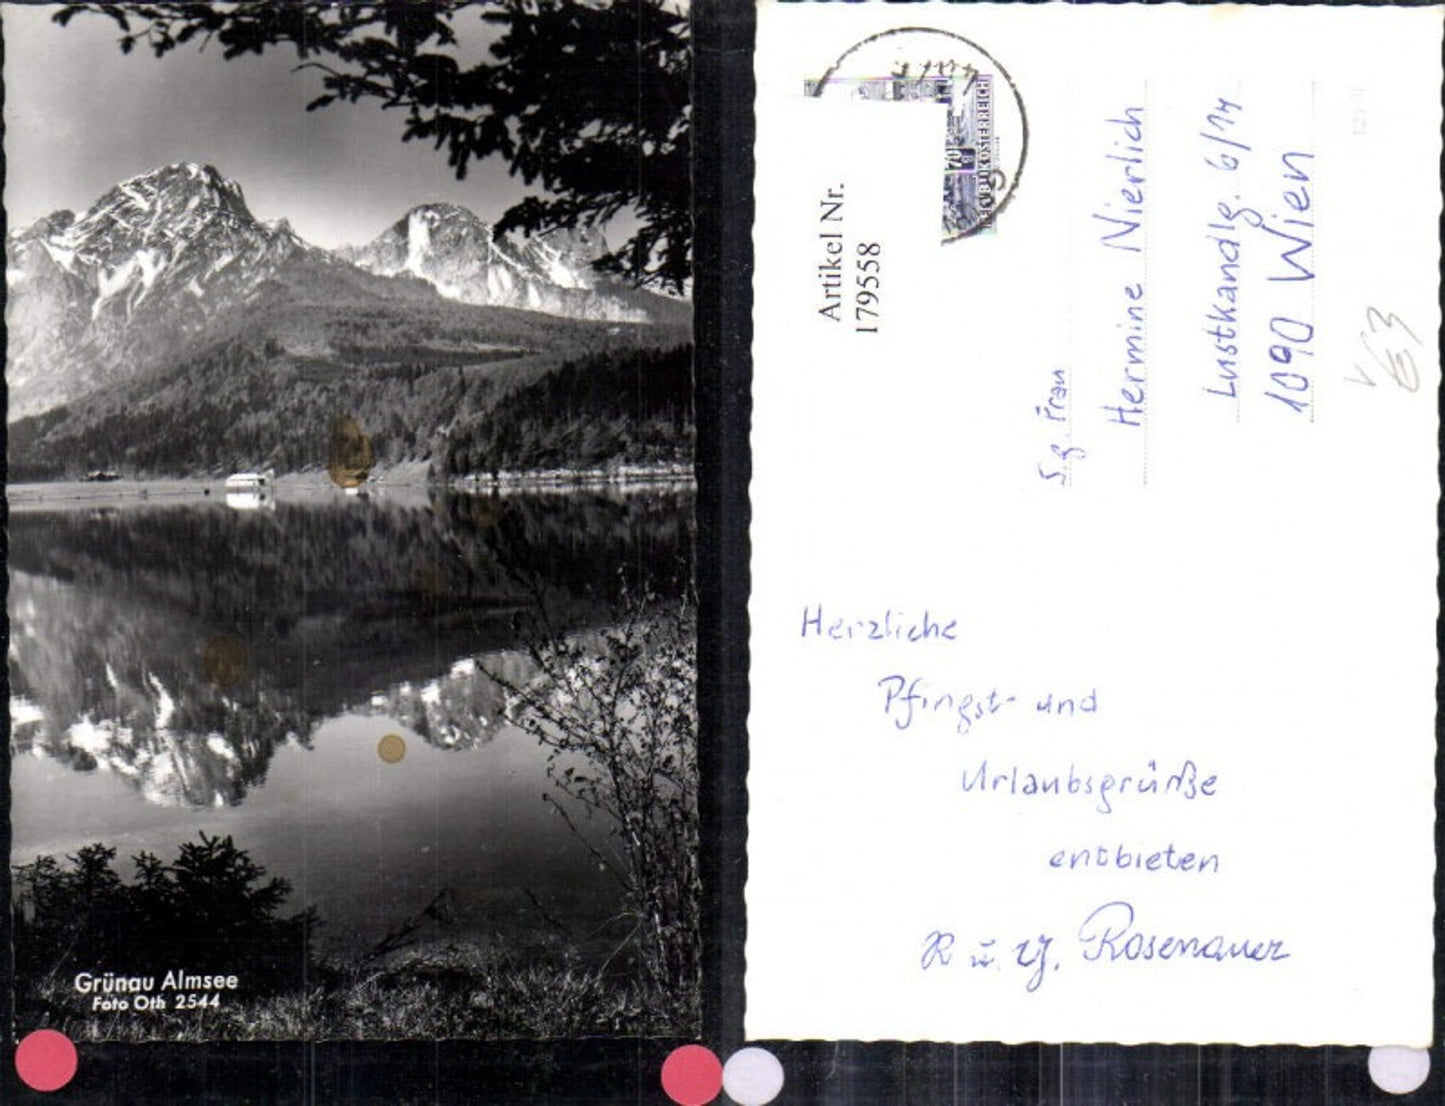 Grünau Almsee
Foto Oth 2544
Artikel Nr.
179558
70
REPUBLIK ÖSTERREICH
S.g. Frau
Hermine Nierlich
Lustkandlg. 6/14
1090 Wien
Herzliche
Pfingst- und
Urlaubsgrüße
entbieten
R u. Rosenauer